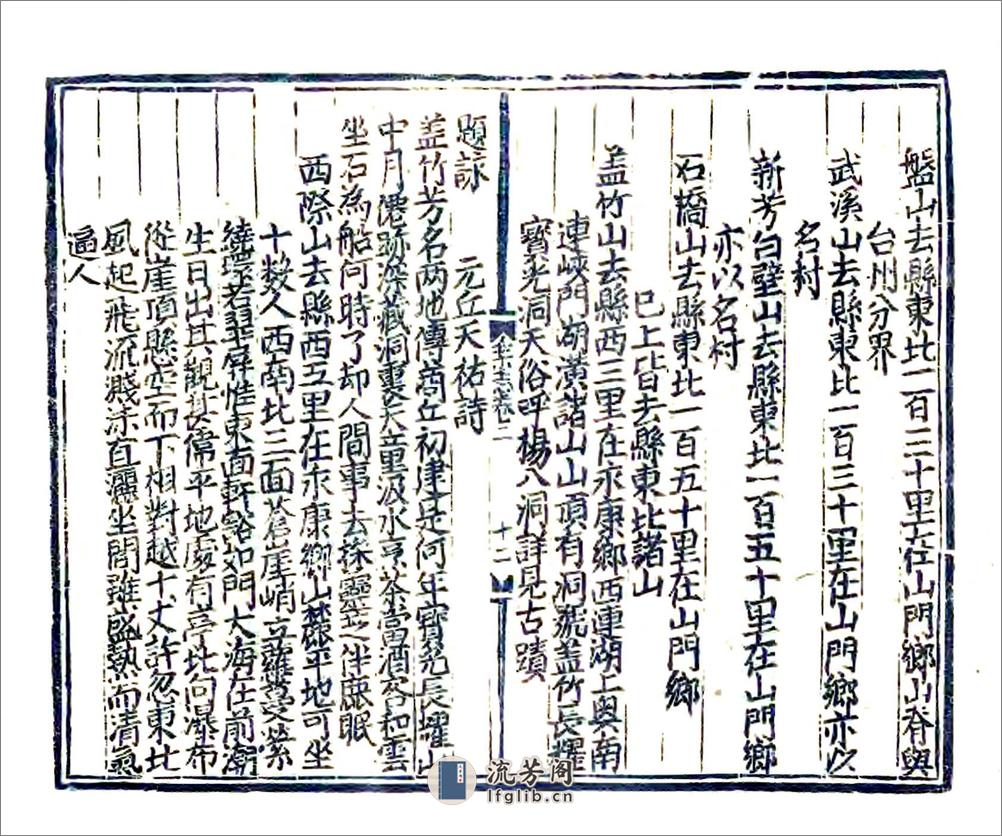 盤山去縣東北一百二十里在山門鄉山脊與
台州分界
武溪山去縣東北一百三十里在山門鄉亦以
名村
新芳白壁山去縣東北一百五十里在山門鄉
亦以名村
石橋山去縣東北一百五十里在山門鄉
已上皆去縣東北諸山
盖竹山去縣西三里在永康鄉西連湖上奧南
連岐門湖潢諸山山頂有洞號盖竹長耀
寳光洞天俗呼楊八洞詳見古蹟
十二
題詠 元丘天祐詩
盖竹芳名两地傳商丘初建是何年寳光長耀山
中月僊跡深藏洞裏天童汲水烹茶當酒客和雲
坐石為船何時了却人間事去採靈芝伴鹿眠
西際山去縣西五里在永康鄉山麓平地可坐
十數人西南北三面蒼崖峭立蘿蔓縈
繞環若翠屏惟東面軒豁如門大海在前潮
生日出其觀甚偉平地處有亭北向瀑布
從崖頂懸空而下相對越十丈許忽東北
風起飛流濺沫直灑坐間雖盛熱而清氣
逼人
流芳阁
lfglib.cn